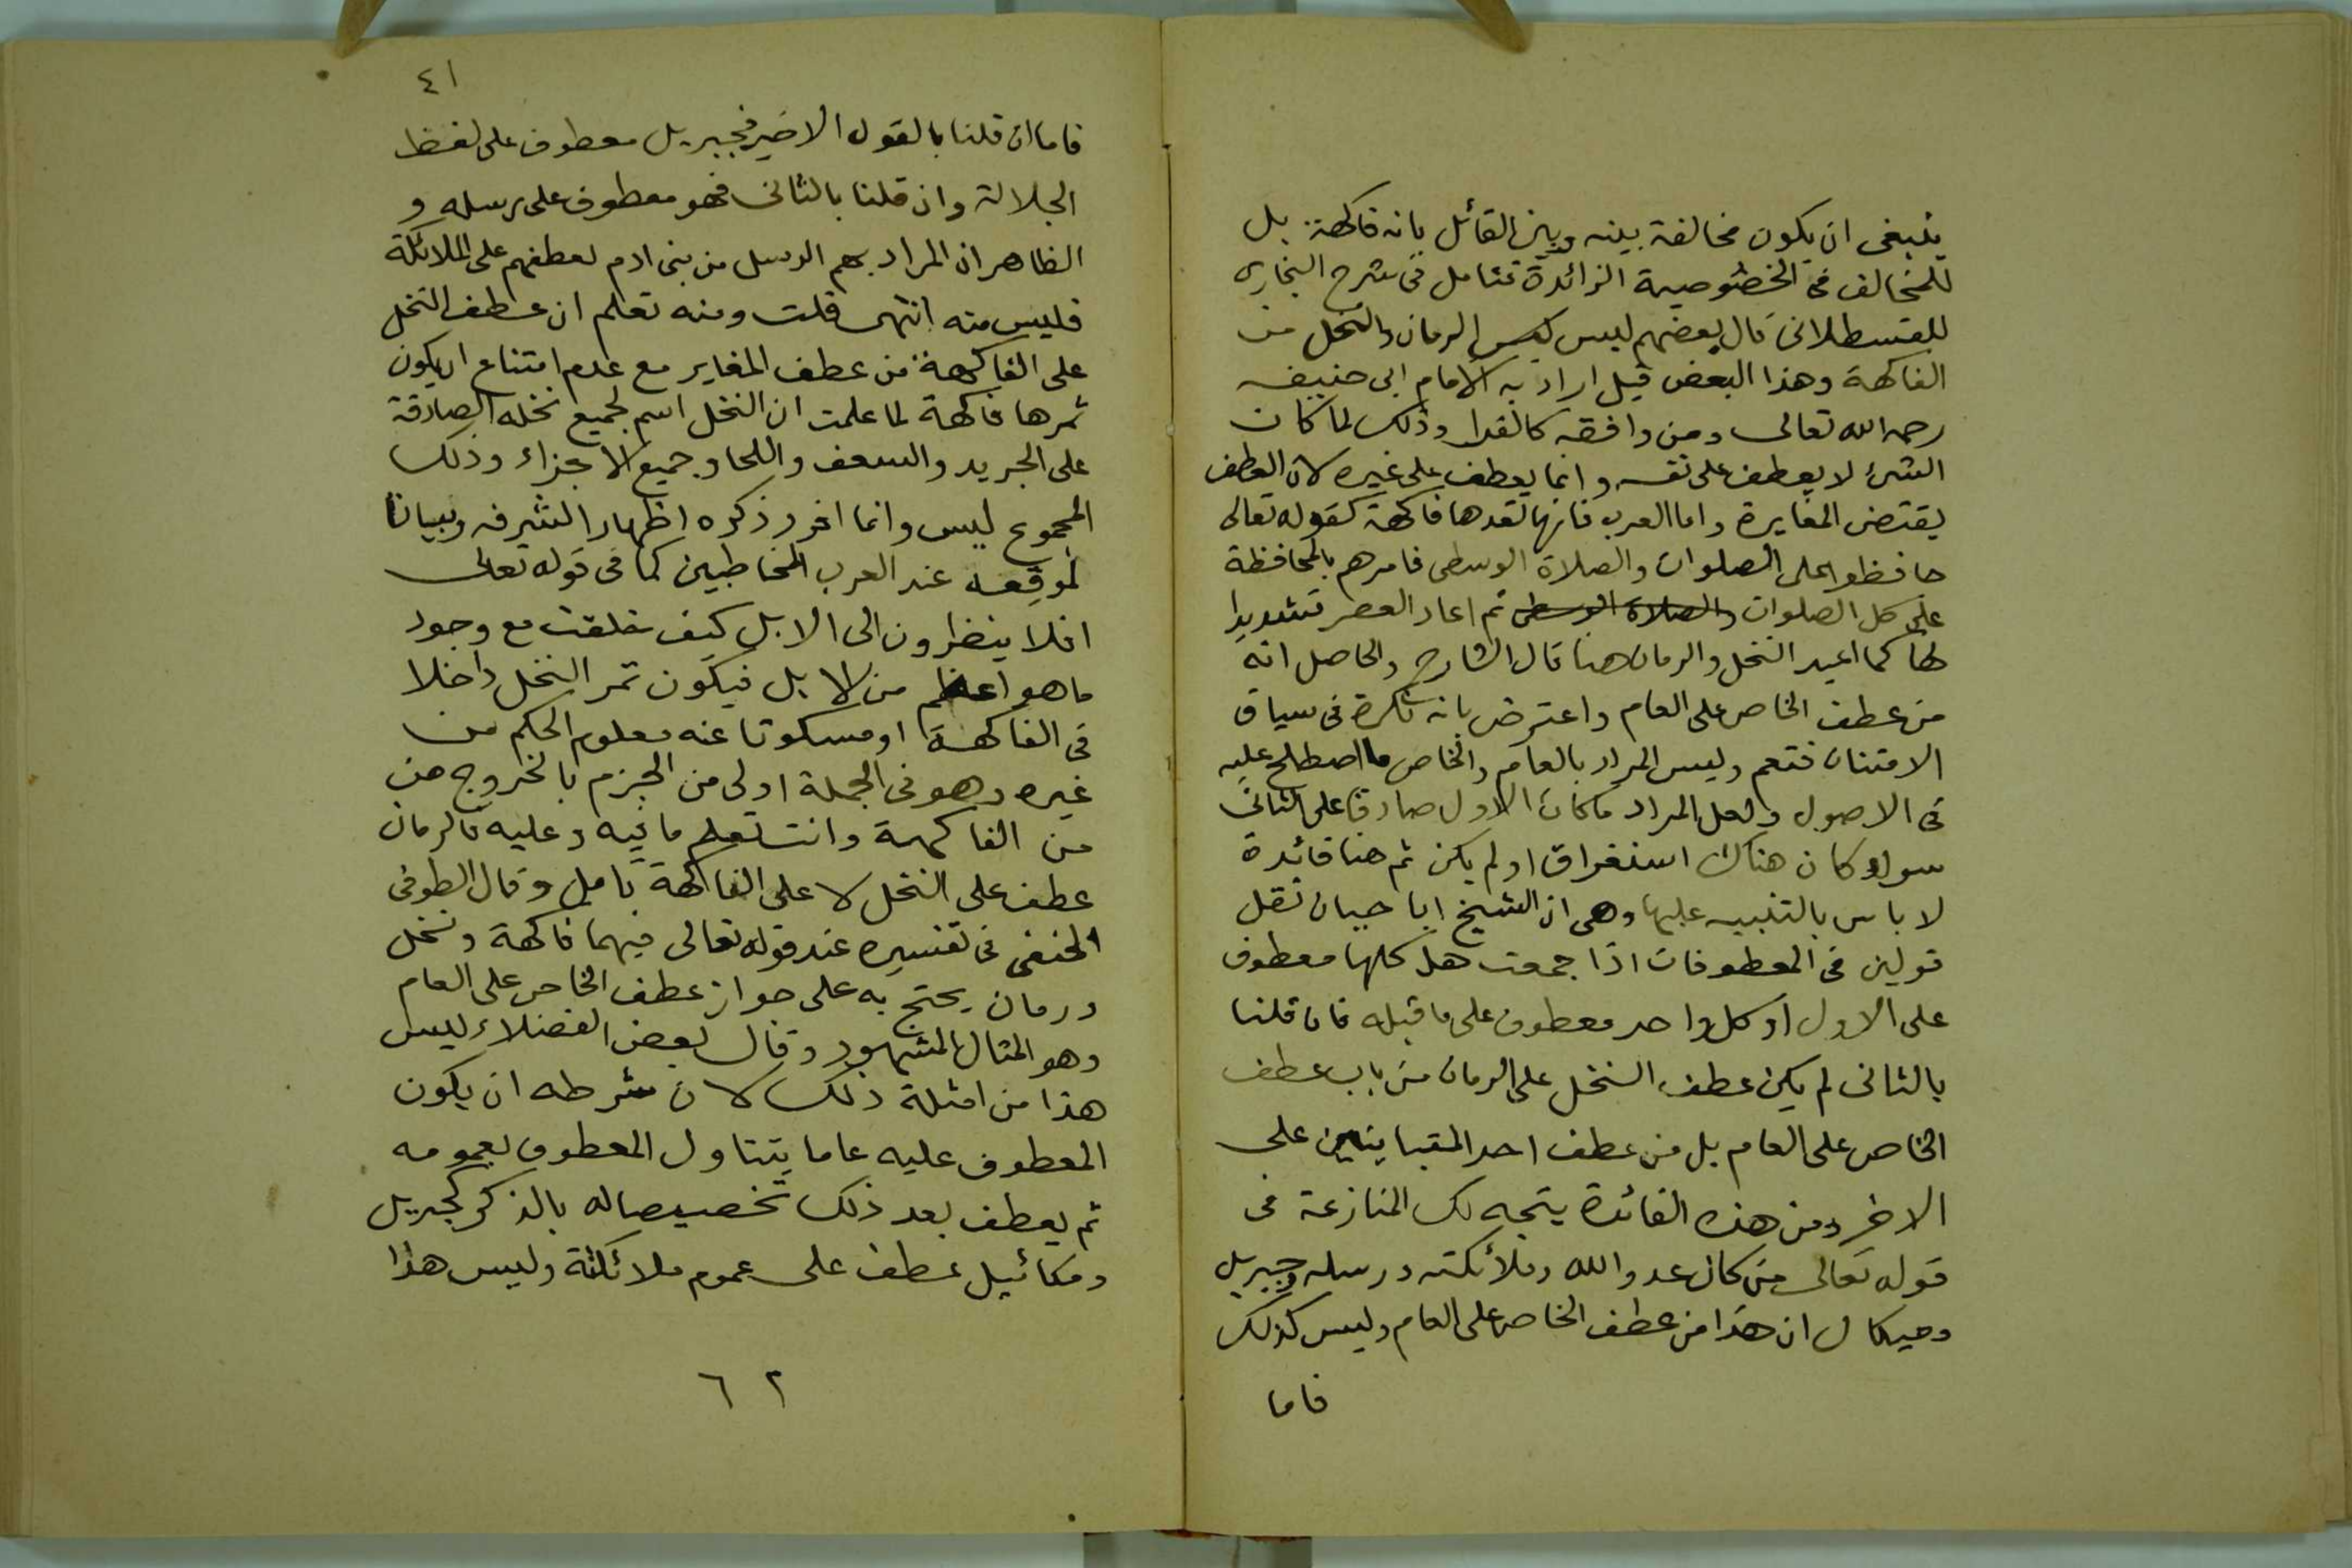 ينبغى ان يكون مخالفة بينه وبين القائل بانه فاكهة بل
للمخالف فى الخصوصية الزائدة فتامل فى شرح البخارى
للقسطلانى قال بعضهم ليس الرمان والنخل من
الفاكهة وهذا البعض قيل اراد به الامام ابى حنيفه
رحمه الله تعالى ومن وافقه كالفراء وذلك لما كان
الشئ لا يعطف على نفسه وانما يعطف على غيره لان العطف
يقتضى المغايرة واما العرب فانها تعدها فاكهة كقوله تعالى
حافظوا على الصلوات والصلاة الوسطى فامرهم بالمحافظة
على كل الصلوات والصلاة الوسطى ثم اعاد العصر تشديدا
لها كما اعيد النخل والرمان هنا قال الشارح والحاصل انه
من عطف الخاص على العام واعترض بانه نكرة فى سياق
الامتنان فتعم وليس المراد بالعام والخاص ما اصطلح عليه
فى الاصول ولعل المراد ما كان الاول صادقا على الثانى
سواء كان هناك استغراق اولم يكن ثم هنا فائدة
لا باس بالتنبيه عليها وهى ان الشيخ ابا حيان نقل
قولين فى المعطوفات اذا جمعت هل كلها معطوف
على الاول او كل واحد معطوف على ما قبله فان قلنا
بالثانى لم يكن عطف النخل على الرمان من باب عطف
الخاص على العام بل من عطف احد المتباينين على
الاخر ومن هذه الفائدة يتجه لك المنازعة فى
قوله تعالى من كان عدوا لله وملائكته ورسله وجبريل
وميكال ان هذا من عطف الخاص على العام وليس كذلك
فاما
٤١
فاما ان قلنا بالقول الاخير فجبريل معطوف على لفظ
الجلالة وان قلنا بالثانى فهو معطوف على رسله و
الظاهر ان المراد بهم الرسل من بنى ادم لعطفهم على الملائكة
فليس منه انتهى قلت ومنه تعلم ان عطف النخل
على الفاكهة من عطف المغاير مع عدم امتناع ان يكون
ثمرها فاكهة لما علمت ان النخل اسم لجميع نخله الصادقة
على الجريد والسعف واللحا وجميع الاجزاء وذلك
المجموع ليس وانما افرد ذكره اظهارا لشرفه وبيانا
لموقعه عند العرب المخاطبين كما فى قوله تعالى
افلا ينظرون الى الابل كيف خلقت مع وجود
ما هو اعظم من الابل فيكون ثمر النخل داخلا
فى الفاكهة او مسكوتا عنه معلوم الحكم من
غيره وهو فى الجملة اولى من الجزم بالخروج من
من الفاكهة وانت تعلم ما فيه وعليه فالرمان
عطف على النخل لا على الفاكهة تامل وقال الطوفى
الحنفى فى تفسيره عند قوله تعالى فيهما فاكهة ونخل
ورمان يحتج به على جواز عطف الخاص على العام
وهو المثال المشهور وقال بعض الفضلاء ليس
هذا من امثلة ذلك لان شرطه ان يكون
المعطوف عليه عاما يتناول المعطوف بعمومه
ثم يعطف بعد ذلك تخصيصا له بالذكر كجبريل
ومكائيل عطف على عموم ملائكته وليس هذا
٦٢